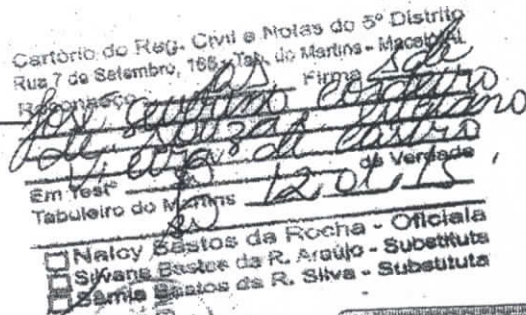 Cartório do Reg. Civil e Notas do 5º Distrito
Rua 7 de Setembro, 166 - Tab. do Martins - Maceió/AL
Reconheço os Firma s de
José Severino Cordeiro
de Souza
Vieira de Castro
Em Testº da Verdade
Tabuleiro do Martins 12 01 15
Nalcy Bastos da Rocha - Oficiala
Silvana Bastos da R. Araújo - Substituta
Samia Bastos da R. Silva - Substituta